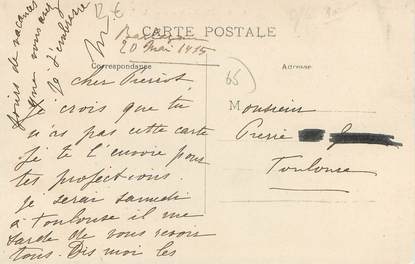 12 €
CARTE POSTALE
20 Mai 1915
Correspondance
Adresse
65
Cher Pierrot
Je crois que tu
n'as pas cette carte
je te l'envoie pour
tes projections.
Je serai samedi
à Toulouse il me
tarde de vous revoir
tous. Dis moi les
jours de vacances
que vous avez
Je t'embrasse
Monsieur
Pierre
Toulouse